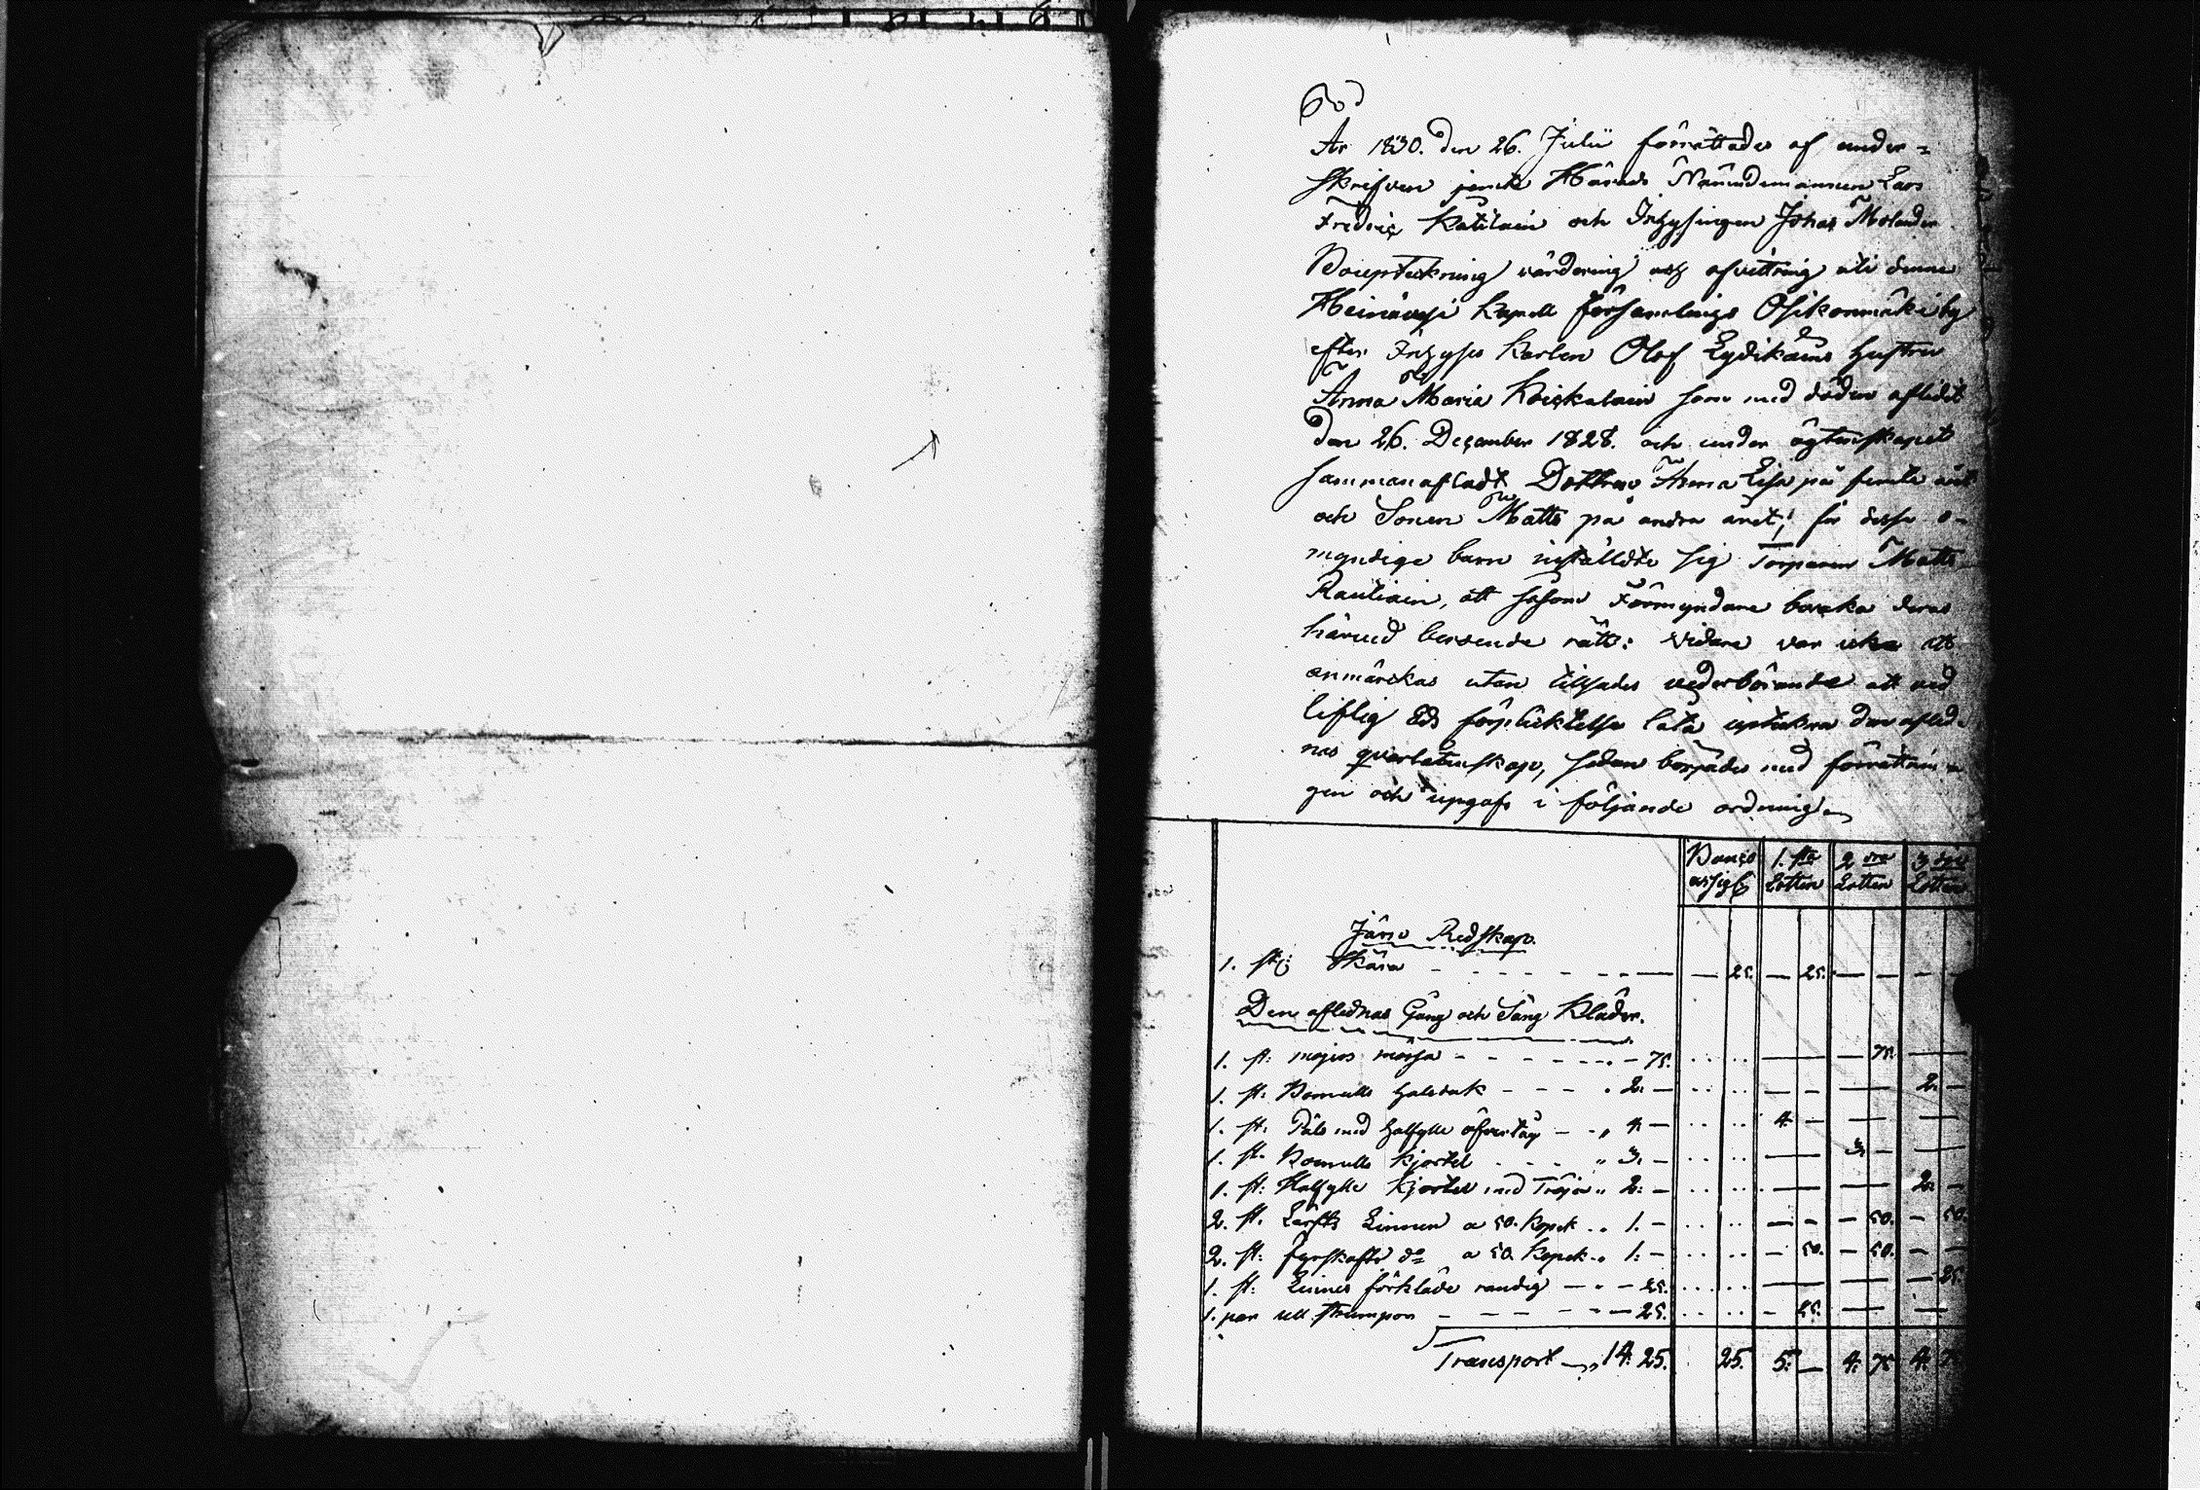 60
År 1830. den 26. Julii förrättades af under=
skrifven jemte Härads Nämndemannen Lars
Fredric Katilain och Inhysingen Johan Molander
Boupteckning värdering och afvittring uti denne
Heinävesi Kapell Församlings Osikonmäki by
efter Inhyses Karlen Olof Lydikäins hustru
Anna Maria Koiskalain som med döden aflidit
den 26. December 1828. och under ägtenskapet
sammanafladt Dottren Anna Lisa på femte året
och Sonen Matts på andra året; för dessa o-
myndige barn instälde sig Torparen Matts
Rautiain, att såsom Förmyndare bevaka deras
härvid beroende rätt: vidare var icke att
anmärckas utan tillsades vederbörande att vid
liflig Eds förplicktelse låta upteckna den aflid-
nas qvarlåtenskap, sedan börjades med förrättnin-
gen och upgafs i följande ordning
1. sta Lotten 2 dra Lotten 3 dje Lotten
Järn Redskap.
1. st: Skära — 25. — 25. — — — —
Den aflednas Gång och Säng Kläder.
1. st: mössa — 75. — 75. —
1. st: Bomulls halsduk 2: — 2: —
1. st: Päls med halfylle öfvertåg 4: — 4: —
1. st. Bomulls Kjortel 3: — 3: —
1. st: Halfylle Kjortel med Tröja 2: — 2: —
2. st. Lärfts Linnen a 50. Kopek 1. — 50. 50.
2. st: fyrskafts do a 50. Kopek 1: — 50. 50.
1. st: Linnes förkläde randig — 25. — 25.
1. par ull strumpor — 25. — 25. —
Transport 14. 25. 25. 5: — 4: 75 4: 75